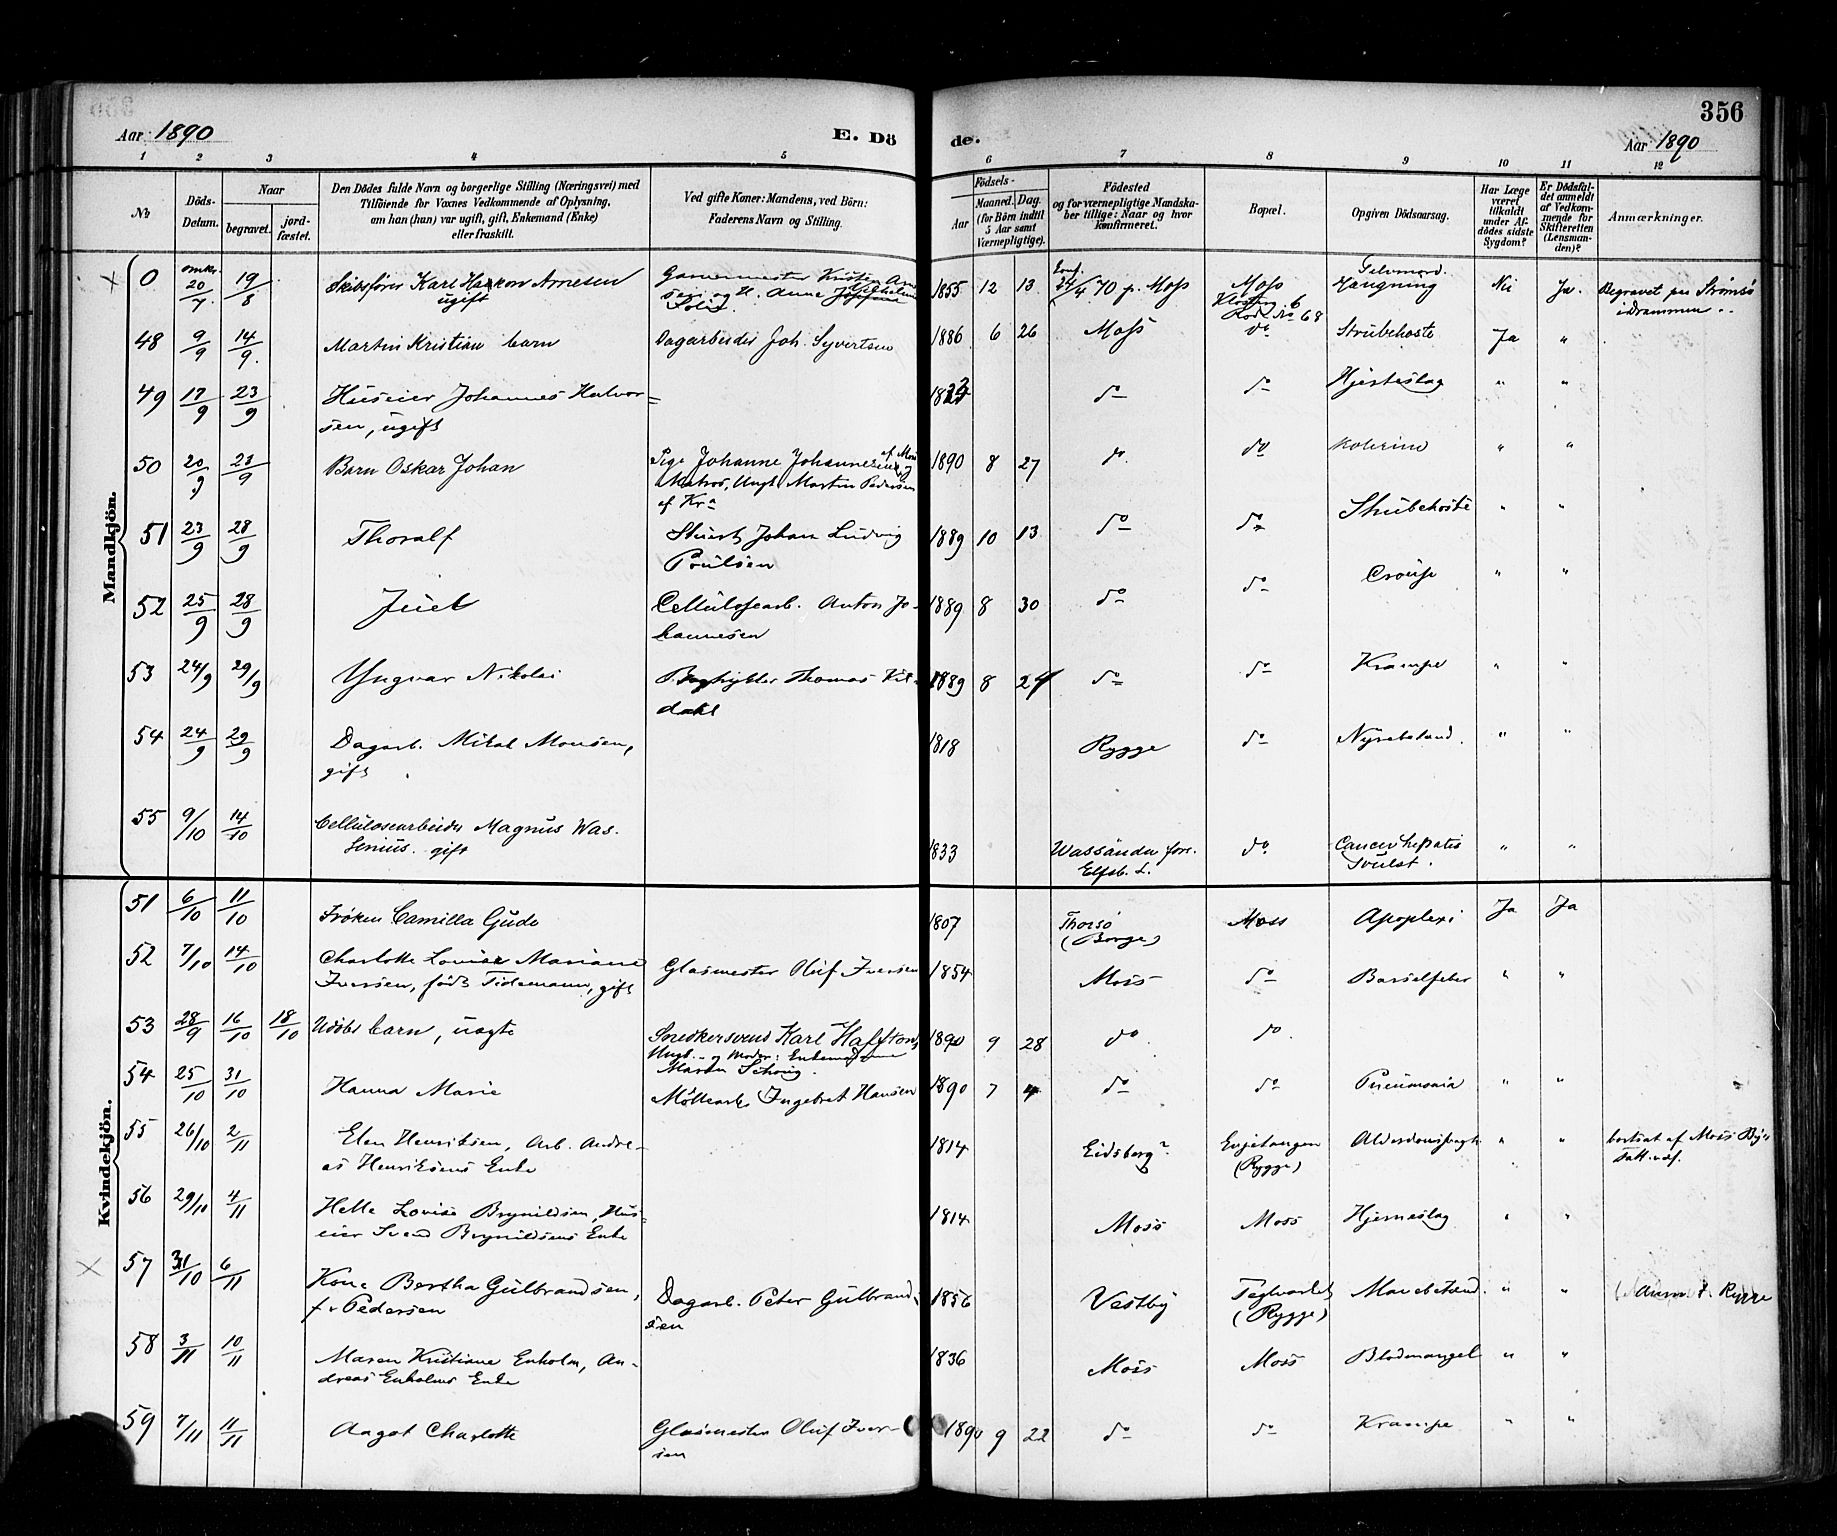 356
Aar 1890
E. Dö
de.
Aar 1890
1 2 3 4 5 6 7 8 9 10 11 12
No
Döds-Datum.
Naar
begravet.
jord-fæstet.
Den Dödes fulde Navn og borgerlige Stilling (Næringsvei) med
Tilföiende for Voxnes Vedkommende af Oplysning,
om han (hun) var ugift, gift, Enkemand (Enke)
eller fraskilt.
Ved gifte Koner: Mandens, ved Börn:
Faderens Navn og Stilling.
Födsels-
Aar
Maaned. Dag.
(for Börn indtil
5 Aar samt
Værnepligtige).
Födested
og for værnepligtige Mandska-
ber tillige: Naar og hvor
konfirmeret.
Bopæl.
Opgiven Dödsaarsag.
Har Læge
været
tilkaldt
under Af-
dödes sidste
Sygdom?
Er Dödsfal-
det anmeldt
af Vedkom-
mende for
Skifteretten
(Lensman-
den)?
Anmærkninger.
Mandkjön.
0 omkr. 20/7 19/8 Skibsfører Karl Haakon Arnesen Garvermester 1855 12 13 Konf. 24/4 70 p. Moss Moss Selvmord. Nei Ja. Begravet paa Strømsø
ugift og H. Anne Hængning i Drammen.
48 9/9 14/9. Martin Kristian barn Dagarbeider Joh. Syvertsen 1886 6 26 Moss do Strubehoste Ja "
49 17/9 23/9 Huseier Johannes Halvor- do do Hjerteslag " "
sen, ugift
50 20/9 23/9 Barn Oskar Johan Pige Johanne Johannesen af Moss 1890 8 27 do. do Kolerine " "
Matros, Ungk. Martin Pedersen
af Kra
51 23/9 28/9 Thoralf Stuert Johan Ludvig 1889 10 13 do do Strubehoste " "
Poulsen
52 25/9 28/9 Juel Cellulosearb. Anton Jo- 1889 8 30 do do Croup " "
hannesen
53 24/9 29/9 Yngvar Nikolai Thomas 1889 8 24 do do Krampe " "
dahl
54 24/9 29/9 Dagarb. Mikal Monsen, 1818 Rygge do Nyrebetænd. " "
gift
55 9/10 14/10 Cellulosearbeider Magnus Was-
senius. gift 1833 Wassända fors. do Cancer hepatis " "
Elfsb. L. Svulst.
Kvindekjön.
51 6/10 11/10 Frøken Camilla Gude 1807 Thorsø Moss Apoplexi Ja Ja
(Borge)
52 7/10 14/10 Charlotte Lovise Mariane Glasmester Oluf Iversen 1854 Moss do Barselfeber " "
Iversen, født Tidemann, gift
53 28/9 16/10 18/10 Udøbt barn, uægte Snedkersvend Karl 1890 9 28 do do.
Ungk. og Moder: Enkemadame
Maren
54 25/10 31/10 Hanna Marie Møllearb. Ingebret Hansen 1890 7 4 do do Pneumonia " "
55 26/10 2/11 Elen Henriksen, Arb. Andre- 1814 Eidsberg? Alderdomssvagh. " " bortsat af Moss Bys
as Henriksens Enke (Rygge) Fatt.væs.
56 29/10 4/11 Helle Lovise Brynildsen, Hus- 1814 Moss Moss Hjerneslag " "
eier Svend Brynildsens Enke
57 31/10 6/11 Kone Bertha Gulbrandsen, Dagarb. Peter Gulbrand- 1856 Vestby Teglverket Mavebetænd. " " Rygge
f. Pedersen sen (Rygge)
58 3/11 10/11 Maren Kristiane Enholm, An- 1836 Moss Moss Blodmangel " "
dreas Enholms Enke
59 7/11 11/11 Aagot Charlotte Glasmester Oluf Iver- 1890 9 22 do do Krampe " "
sen